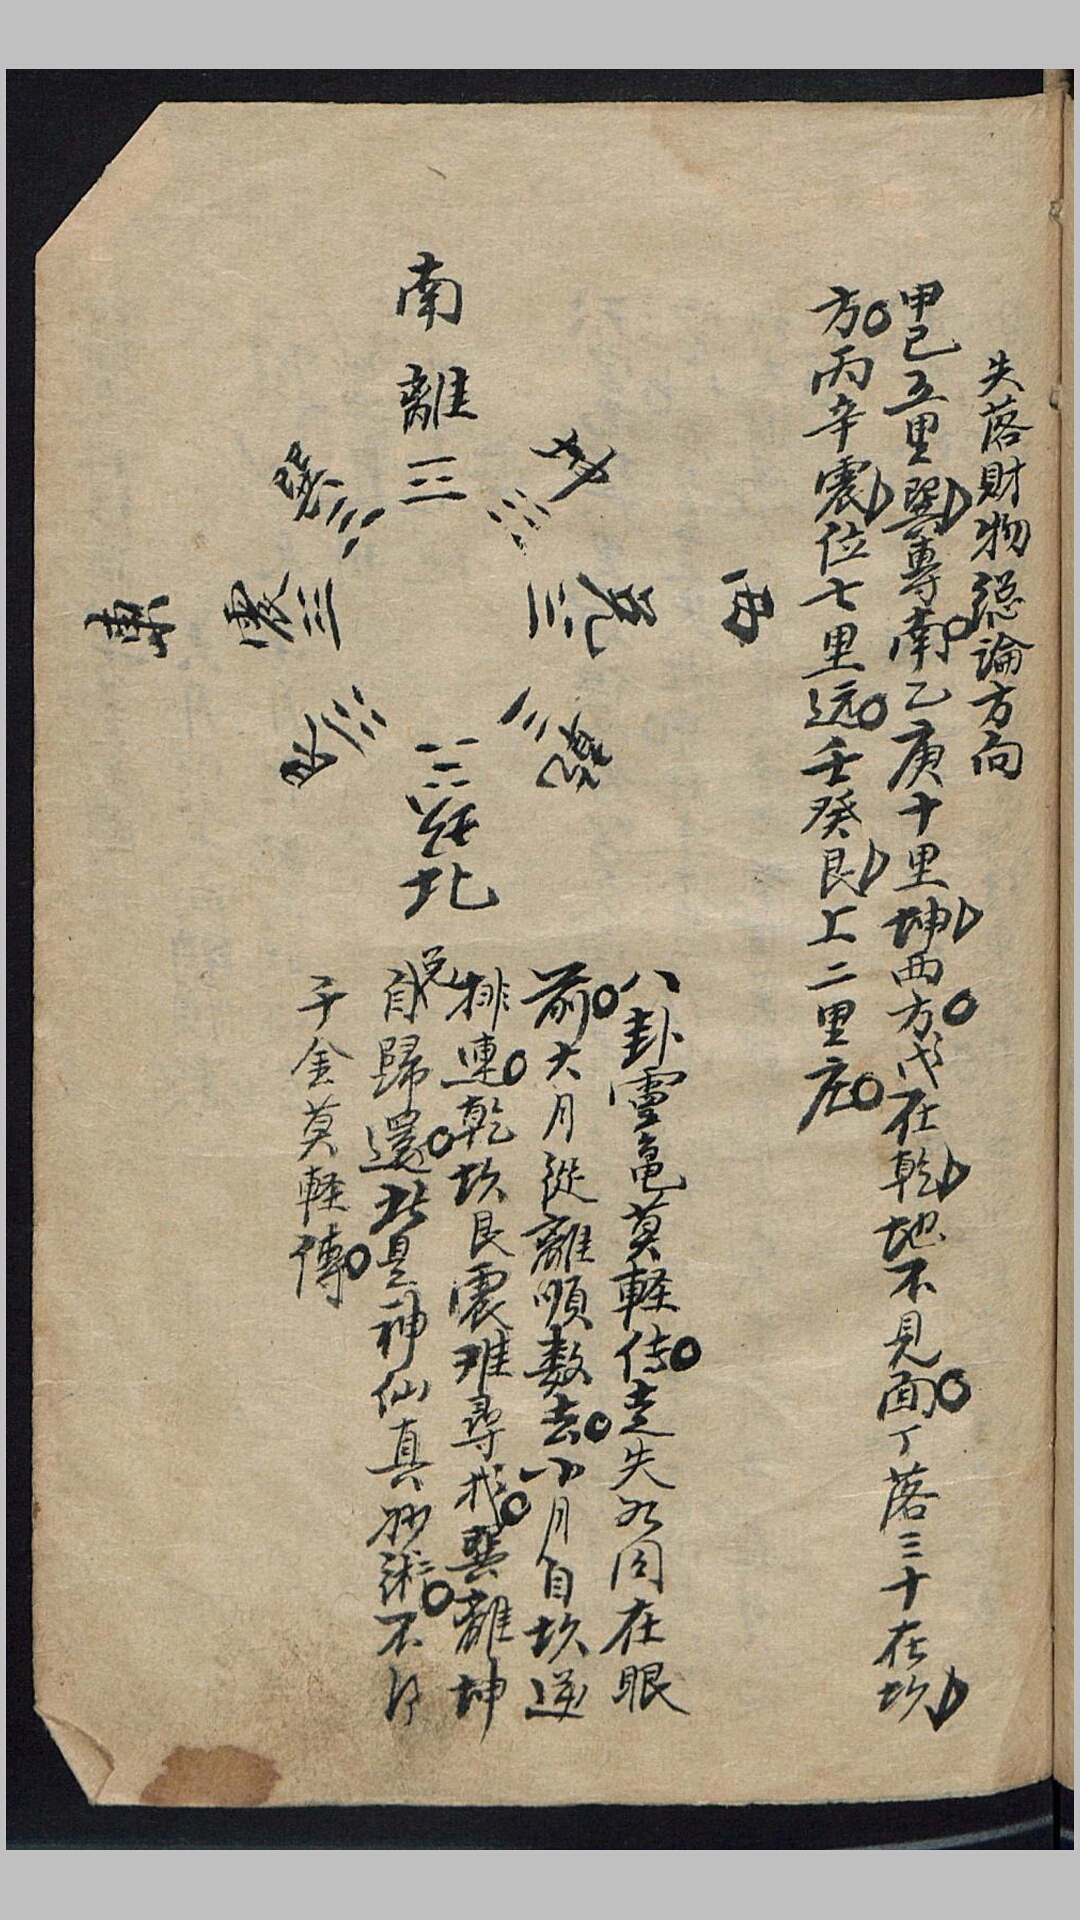 失落財物總論方向
甲己五里巽專南乙庚十里坤西方戊在乾地不見面丁落三十在坎
方丙辛震位七里远壬癸艮上二里庄
南
離 ☲
巽 ☴
坤 ☷
東
震 ☳
兌 ☱
西
艮 ☶
乾 ☰
☵ 坎
北
八卦靈亀莫軽传走失必囙在眼
前大月從離順数去小月自坎逆
排連乾坎艮震难尋找巽離坤
兌自歸還此是神仙真妙術不
千金莫軽傳